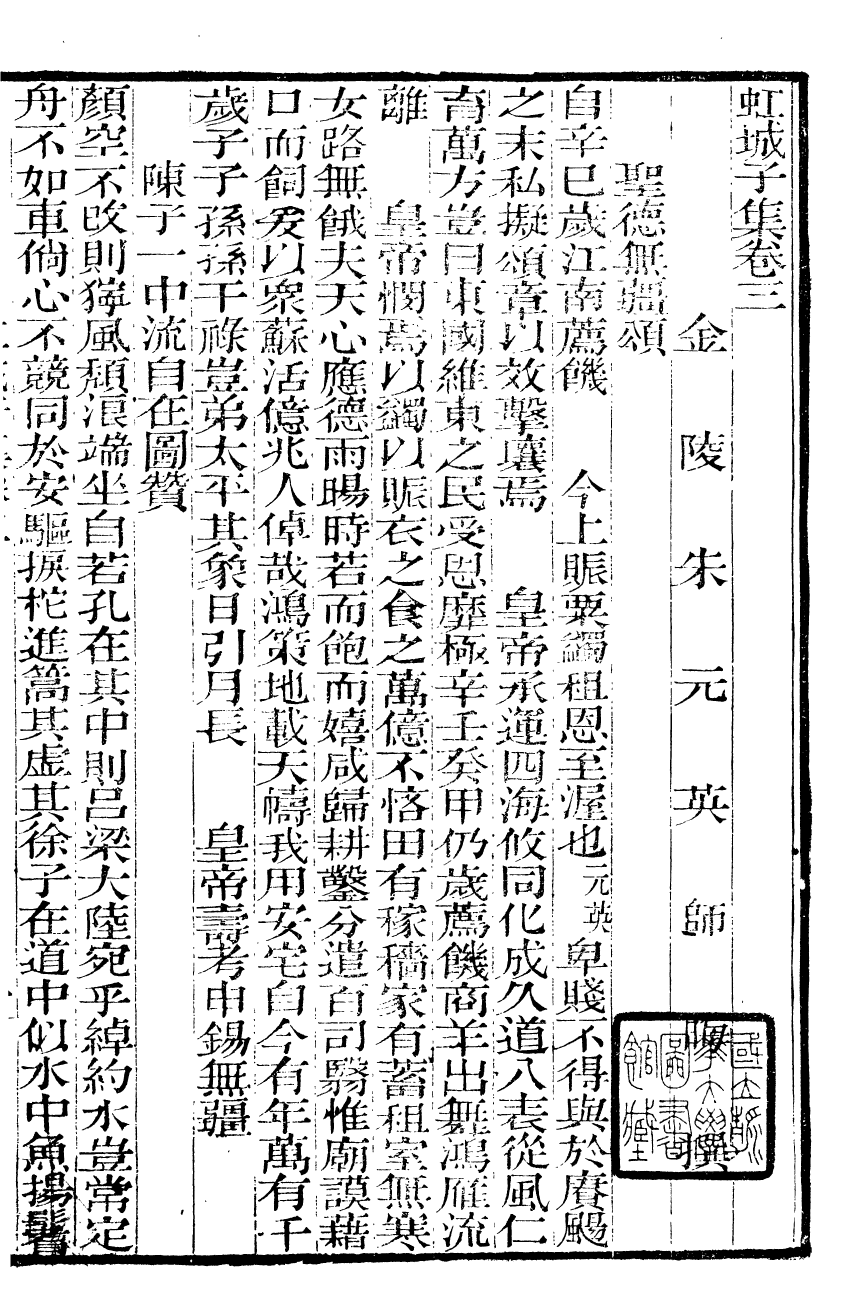 虹城子集卷三
金陵朱元英師 撰
聖德無疆頌
自辛巳歲江南薦饑 今上賑粟蠲租恩至渥也元英卑賤不得與於賡颺
之末私擬頌章以效擊壤焉 皇帝承運四海攸同化成久道八表從風仁
畜萬方豈曰東國維東之民受恩靡極辛壬癸甲仍歲薦饑商羊出舞鴻雁流
離 皇帝憫焉以蠲以賑衣之食之萬億不悋田有稼穡家有蓄租室無寒
女路無餓夫天心應德雨暘時若而飽而嬉咸歸耕鑿分遣百司翳惟廟謨藉
口而飼爰以衆蘇活億兆人倬哉鴻策地載天幬我用安宅自今有年萬有千
歲子子孫孫干祿豈弟太平其象日引月長 皇帝壽考申錫無疆
陳子一中流自在圖贊
顏空不改則獰風頹浪端坐自若孔在其中則呂梁大陸宛乎綽約水豈常定
舟不如車倘心不競同於安驅捩柁進篙其虛其徐子在道中似水中魚揚鬐